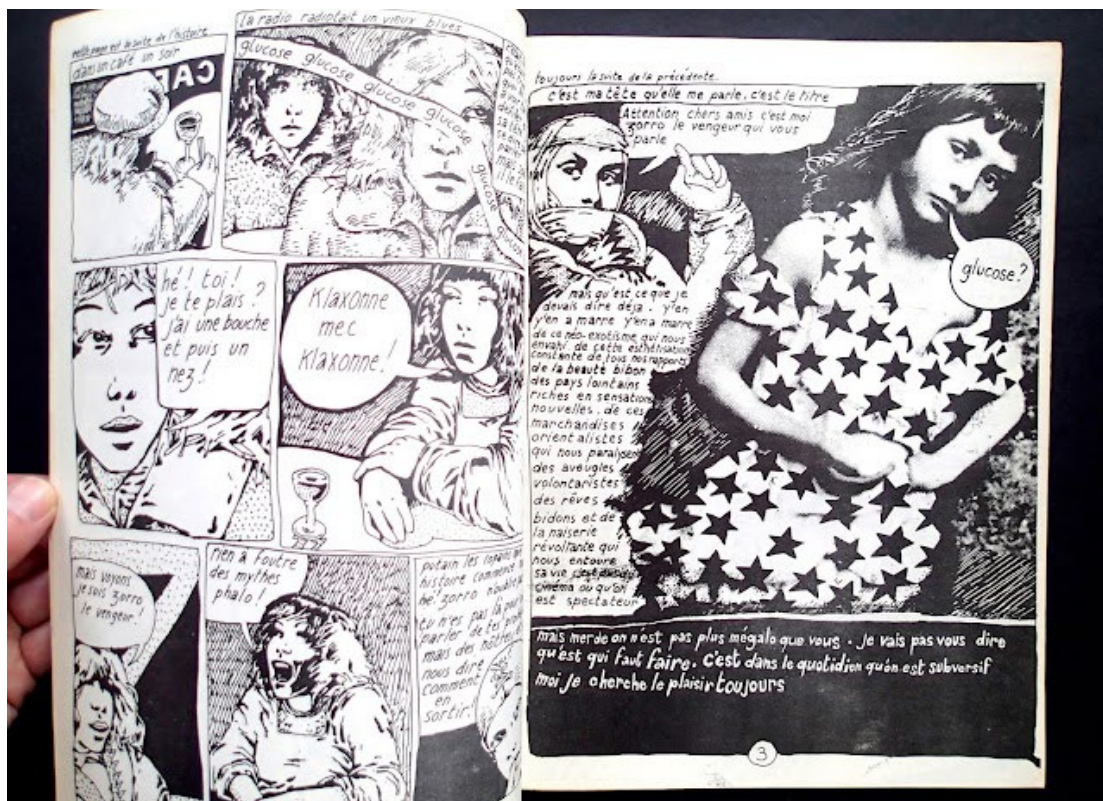 cette page est la suite de l'histoire
dans un café un soir
CAF
la radio radiotait un vieux blues
glucose glucose glucose glucose glucose
glucose glucose
hé! toi!
je te plais?
j'ai une bouche
et puis un
nez!
Klaxonne
mec
Klaxonne!
mais voyons
je suis zorro
le vengeur!
rien à foutre
des mythes
phalo!
putain les
histoire commence
hé! zorro
tu n'es pas là pour
parler de tes
mais des
nous dire
comment
en
sortir!
toujours la suite de la précédente.
c'est ma tête qu'elle me parle. c'est le titre
Attention chers amis c'est moi
zorro le vengeur qui vous
parle
glucose?
mais qu'est ce que je
devais dire déja. y'en
y'en a marre y'en a marre
de ce néo-exotisme qui nous
envahi. de cette esthétisation
constante de tous nos rapports
de la beauté bibon
des pays lointains
riches en sensations
nouvelles. de ces
marchandises
orientalistes
qui nous paraissent
des aveugles
volontaristes
des rêves
bidons et de
la naiserie
révoltante qui
nous entoure
sa vie c'est du
cinéma où qu'on
est spectateur
mais merde on n'est pas plus mégalo que vous. je vais pas vous dire
qu'est qui faut faire. c'est dans le quotidien qu'on est subversif
moi je cherche le plaisir toujours
3